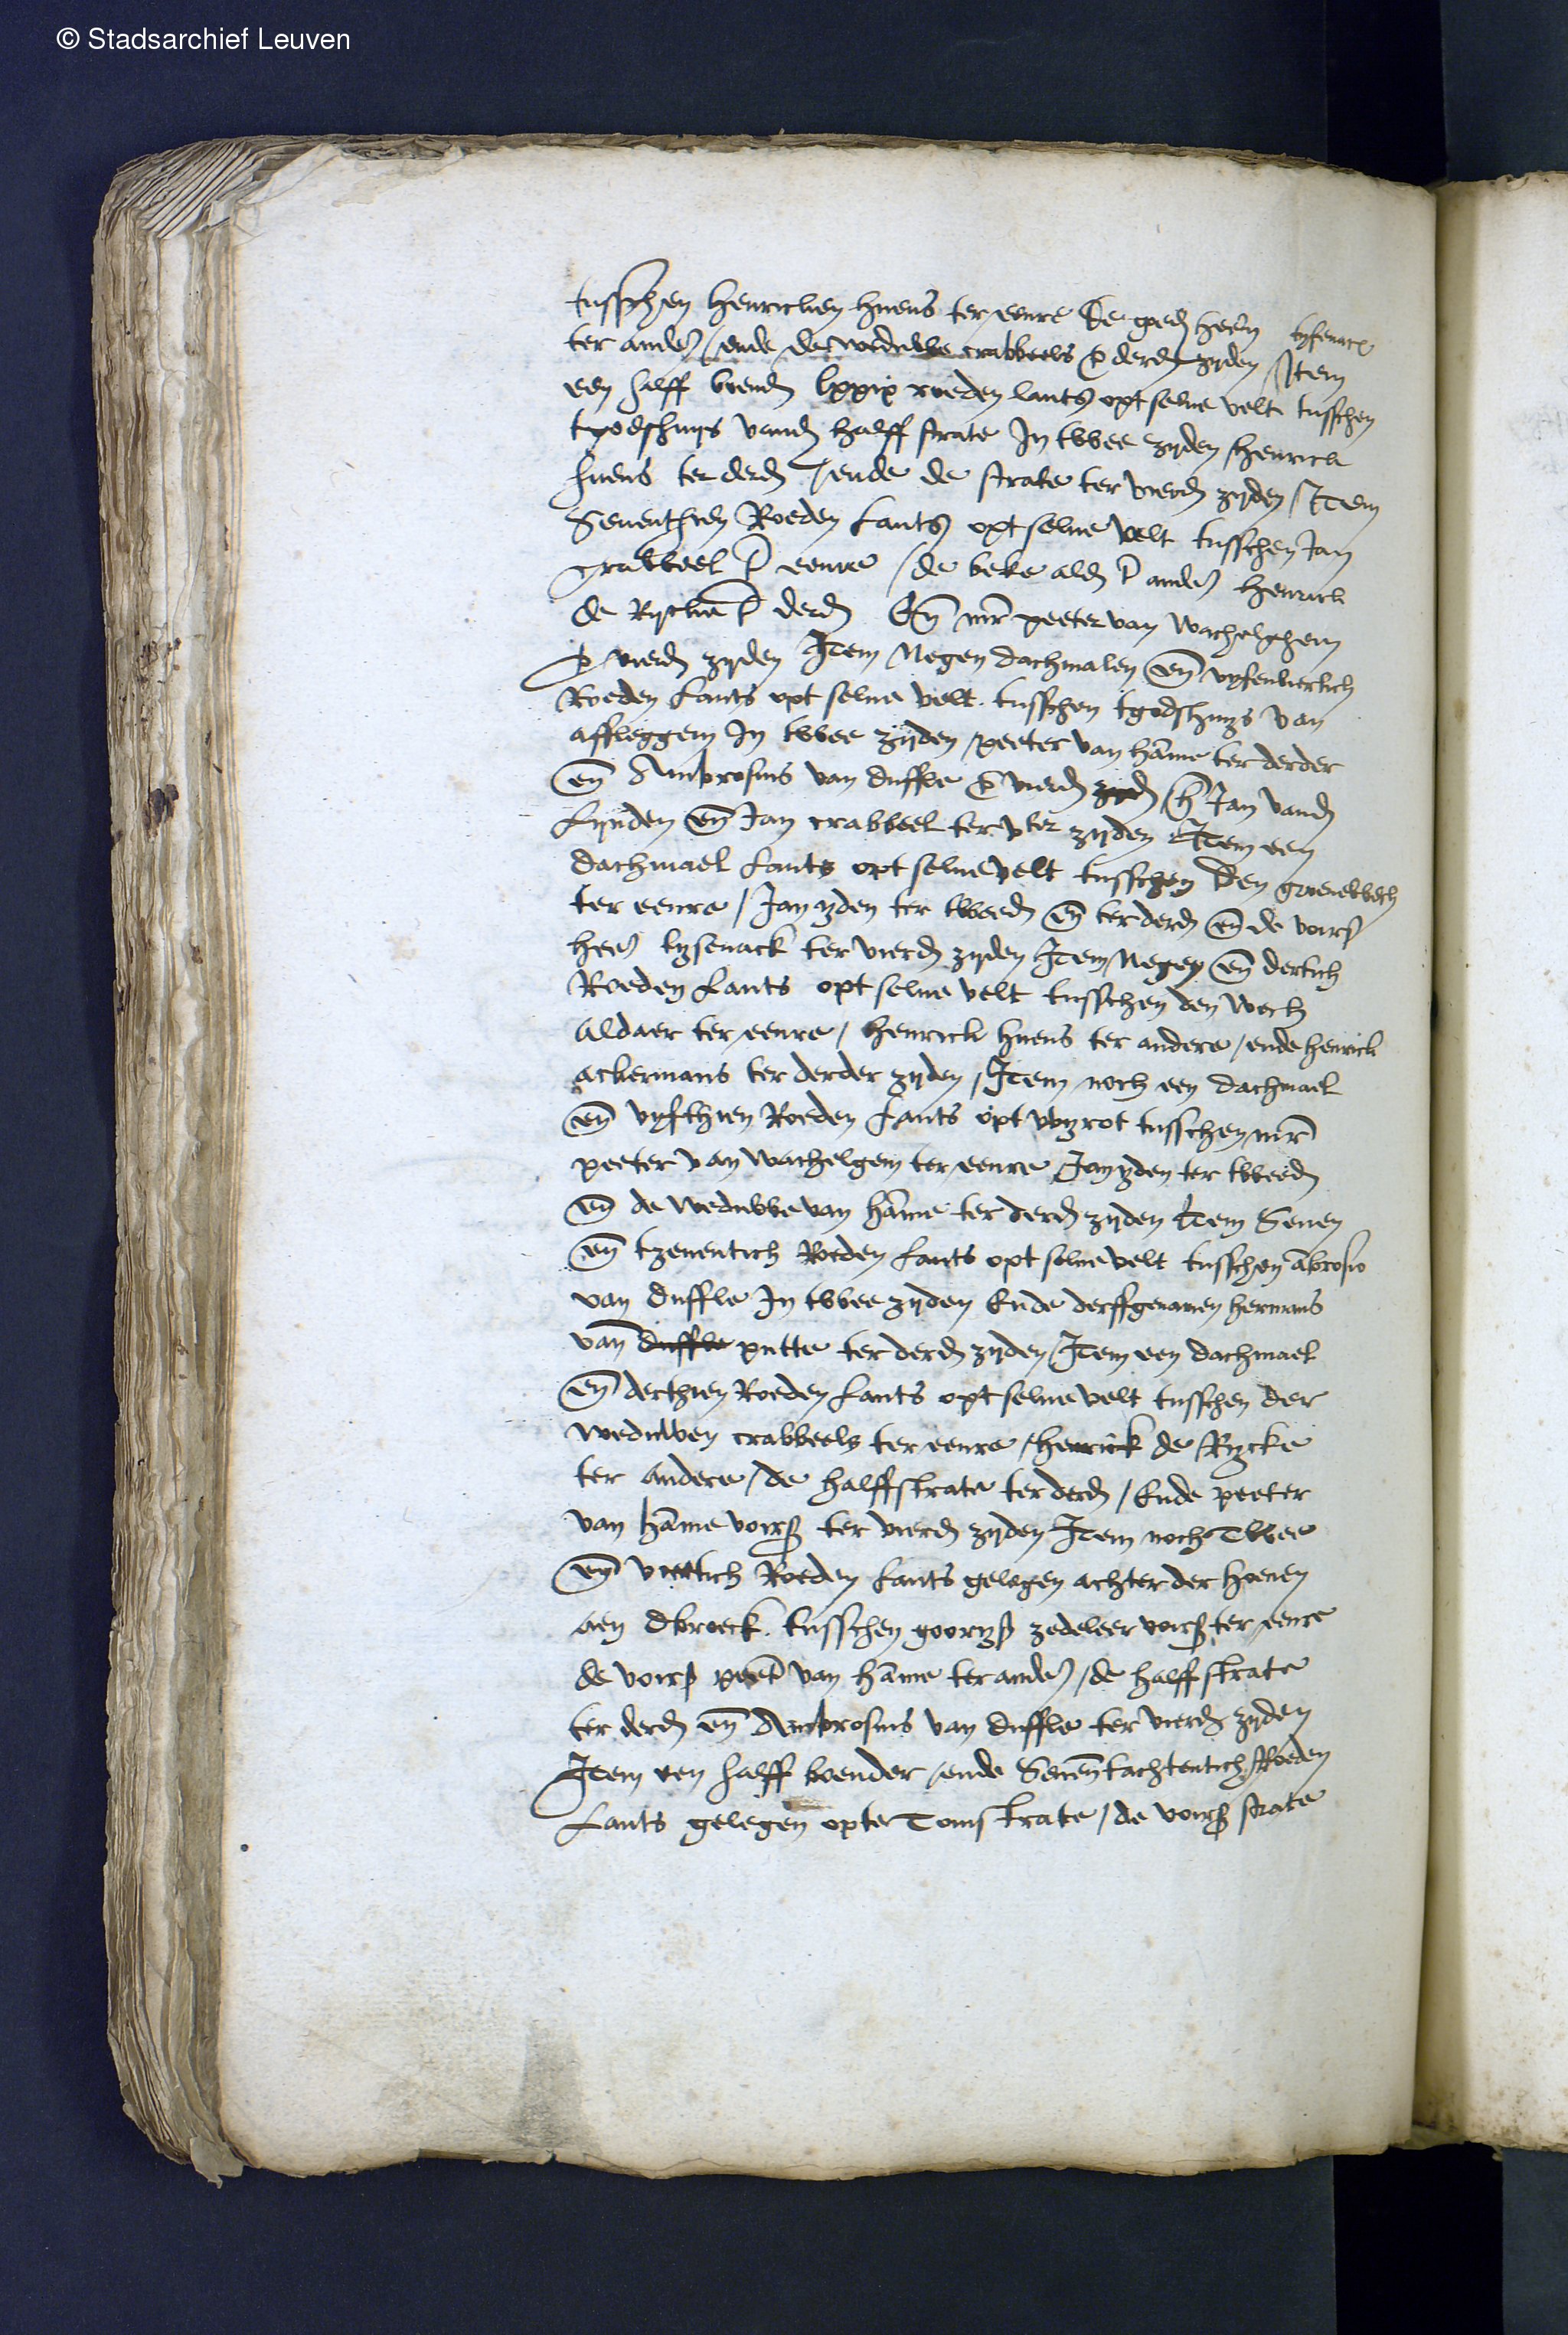 © Stadsarchief Leuven
tusschen henricken huens ter eenre de goed heern tysenack
ter ander ende de weduwe crabbeels t derd zyden Item
een halff bvend lxxix roeden lants opt selve velt tusschen
tgodshuys vand halff strate In twee zyden henrick
huens ter derd ende de strate ter vierd zyden Item
Seventhien Roeden Lants opt selve velt tusschen Jan
crabbeel t eenre de beke ald t ander henrick
de Ryck t derd En mr peeter van wachelghem
t vierd zyden Item Negen dachmalen en vyfenviertich
Roeden Lants opt selve velt tusschen tgodshuys van
affleggem In twee zyden peeter van hame ter derder
en Ambrosius van duffle t vierd zyd h Jan vand
Lynden en Jan crabbeel ter vter zyden Item een
dachmael Lants opt selve velt tusschen den groenewech
ter eenre / Jan yden ter tweed en ter derd en de voirs
heer tysenack ter vierd zyden Item Negen en dertich
Roeden Lants opt selve velt tusschen den wech
aldaer ter eenre / henrick huens ter andere / ende henrick
ackermans ter derder zyden / Item noch een dachmael
en vyfthien Roeden Lants opt wyrot tusschen mr
peeter van wachelgem ter eenre Jan yden ter tweed
en de weduwe van hame ter derd zyden Item Seven
en tzeventich Roeden Lants opt selve velt tusschen abrosio
van duffle In twee zyden Ende derffgenamen hermans
van duffle putte ter derd zyden Item een dachmael
en derthien Roeden Lants opt selve velt tusschen der
weduwen crabbeels ter eenre / henrick de Rycke
ter andere / de halffstrate ter derd / Ende peeter
van hame voirs ter vierd zyden Item noch Twee
en viertich Roeden Lants gelegen achter der hoeven
aen dbroeck tusschen goorys zedeleer voirs ter eenre
de voirs peet van hame ter ander / de halffstrate
ter derd en Ambrosius van duffle ter vierd zyden
Item een halff boender / ende Seven tachtentich Roeden
Lants gelegen opte Tomstrate / de voirs strate